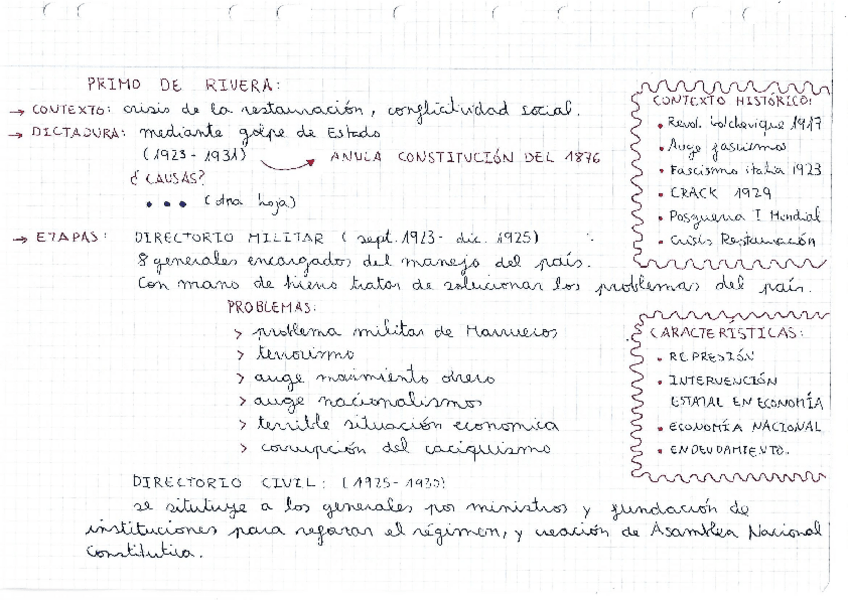 PRIMO DE RIVERA:
→ CONTEXTO: crisis de la restauración, conflictividad social.
→ DICTADURA: mediante golpe de Estado
(1923 - 1931) → ANULA CONSTITUCIÓN DEL 1876
¿CAUSAS?
• • • (otra hoja)
→ ETAPAS: DIRECTORIO MILITAR (sept. 1923 - dic. 1925)
8 generales encargados del manejo del país.
Con mano de hierro tratar de solucionar los problemas del país.
PROBLEMAS:
> problema militar de Marruecos
> terrorismo
> auge movimiento obrero
> auge nacionalismos
> terrible situación economica
> corrupción del caciquismo
DIRECTORIO CIVIL: (1925 - 1930)
se situtuye a los generales por ministros y fundación de
instituciones para reforzar el régimen, y creación de Asamblea Nacional
Constitutiva.
CONTEXTO HISTÓRICO:
• Revol. bolchevique 1917
• Auge fascismos
• Fascismo italia 1923
• CRACK 1929
• Posguerra I Mundial
• Crisis Restauración
CARACTERÍSTICAS:
• REPRESIÓN
• INTERVENCIÓN
ESTATAL EN ECONOMÍA
• ECONOMÍA NACIONAL
• ENDEUDAMIENTO.